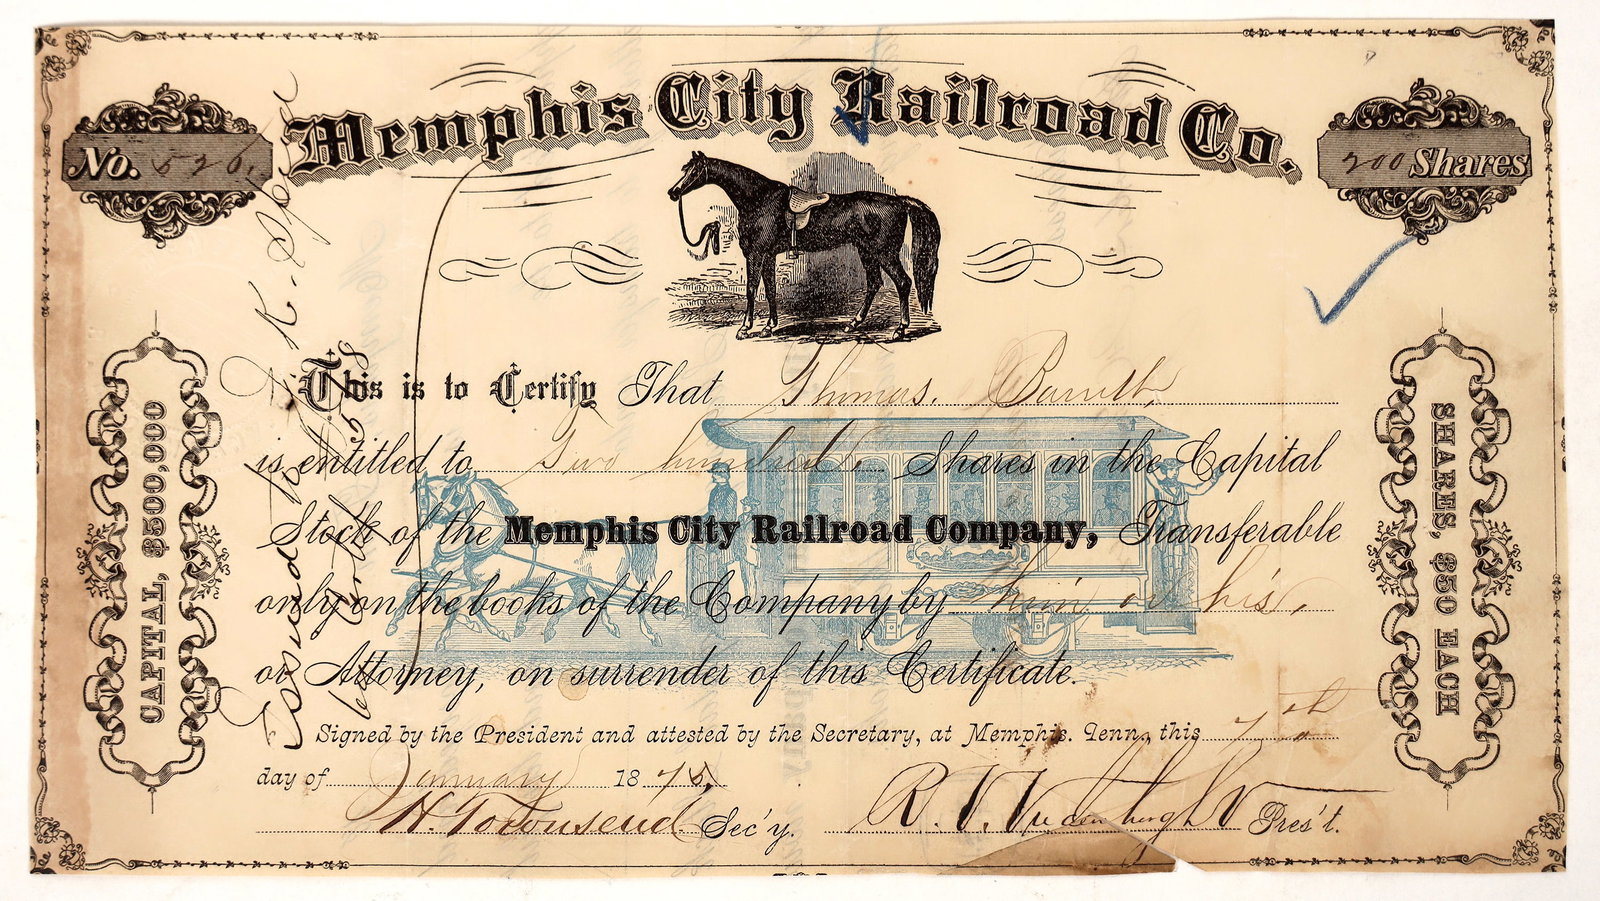 Memphis City Railroad Co.
No. 526.
200 Shares
This is to Certify That Thomas. Barrett
is entitled to Two hundred Shares in the Capital
Stock of the Memphis City Railroad Company, Transferable
only on the books of the Company by him or his,
or Attorney, on surrender of this Certificate.
Signed by the President and attested by the Secretary, at Memphis. Tenn, this 7th
day of January 1875,
H. Townsend Sec'y. R. V. Vredenburgh Pres't.
CAPITAL, $500,000
SHARES, $50 EACH